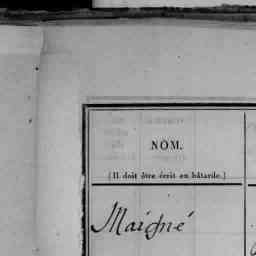 NOM.
(Il doit être écrit en bâtarde.)
Maigné